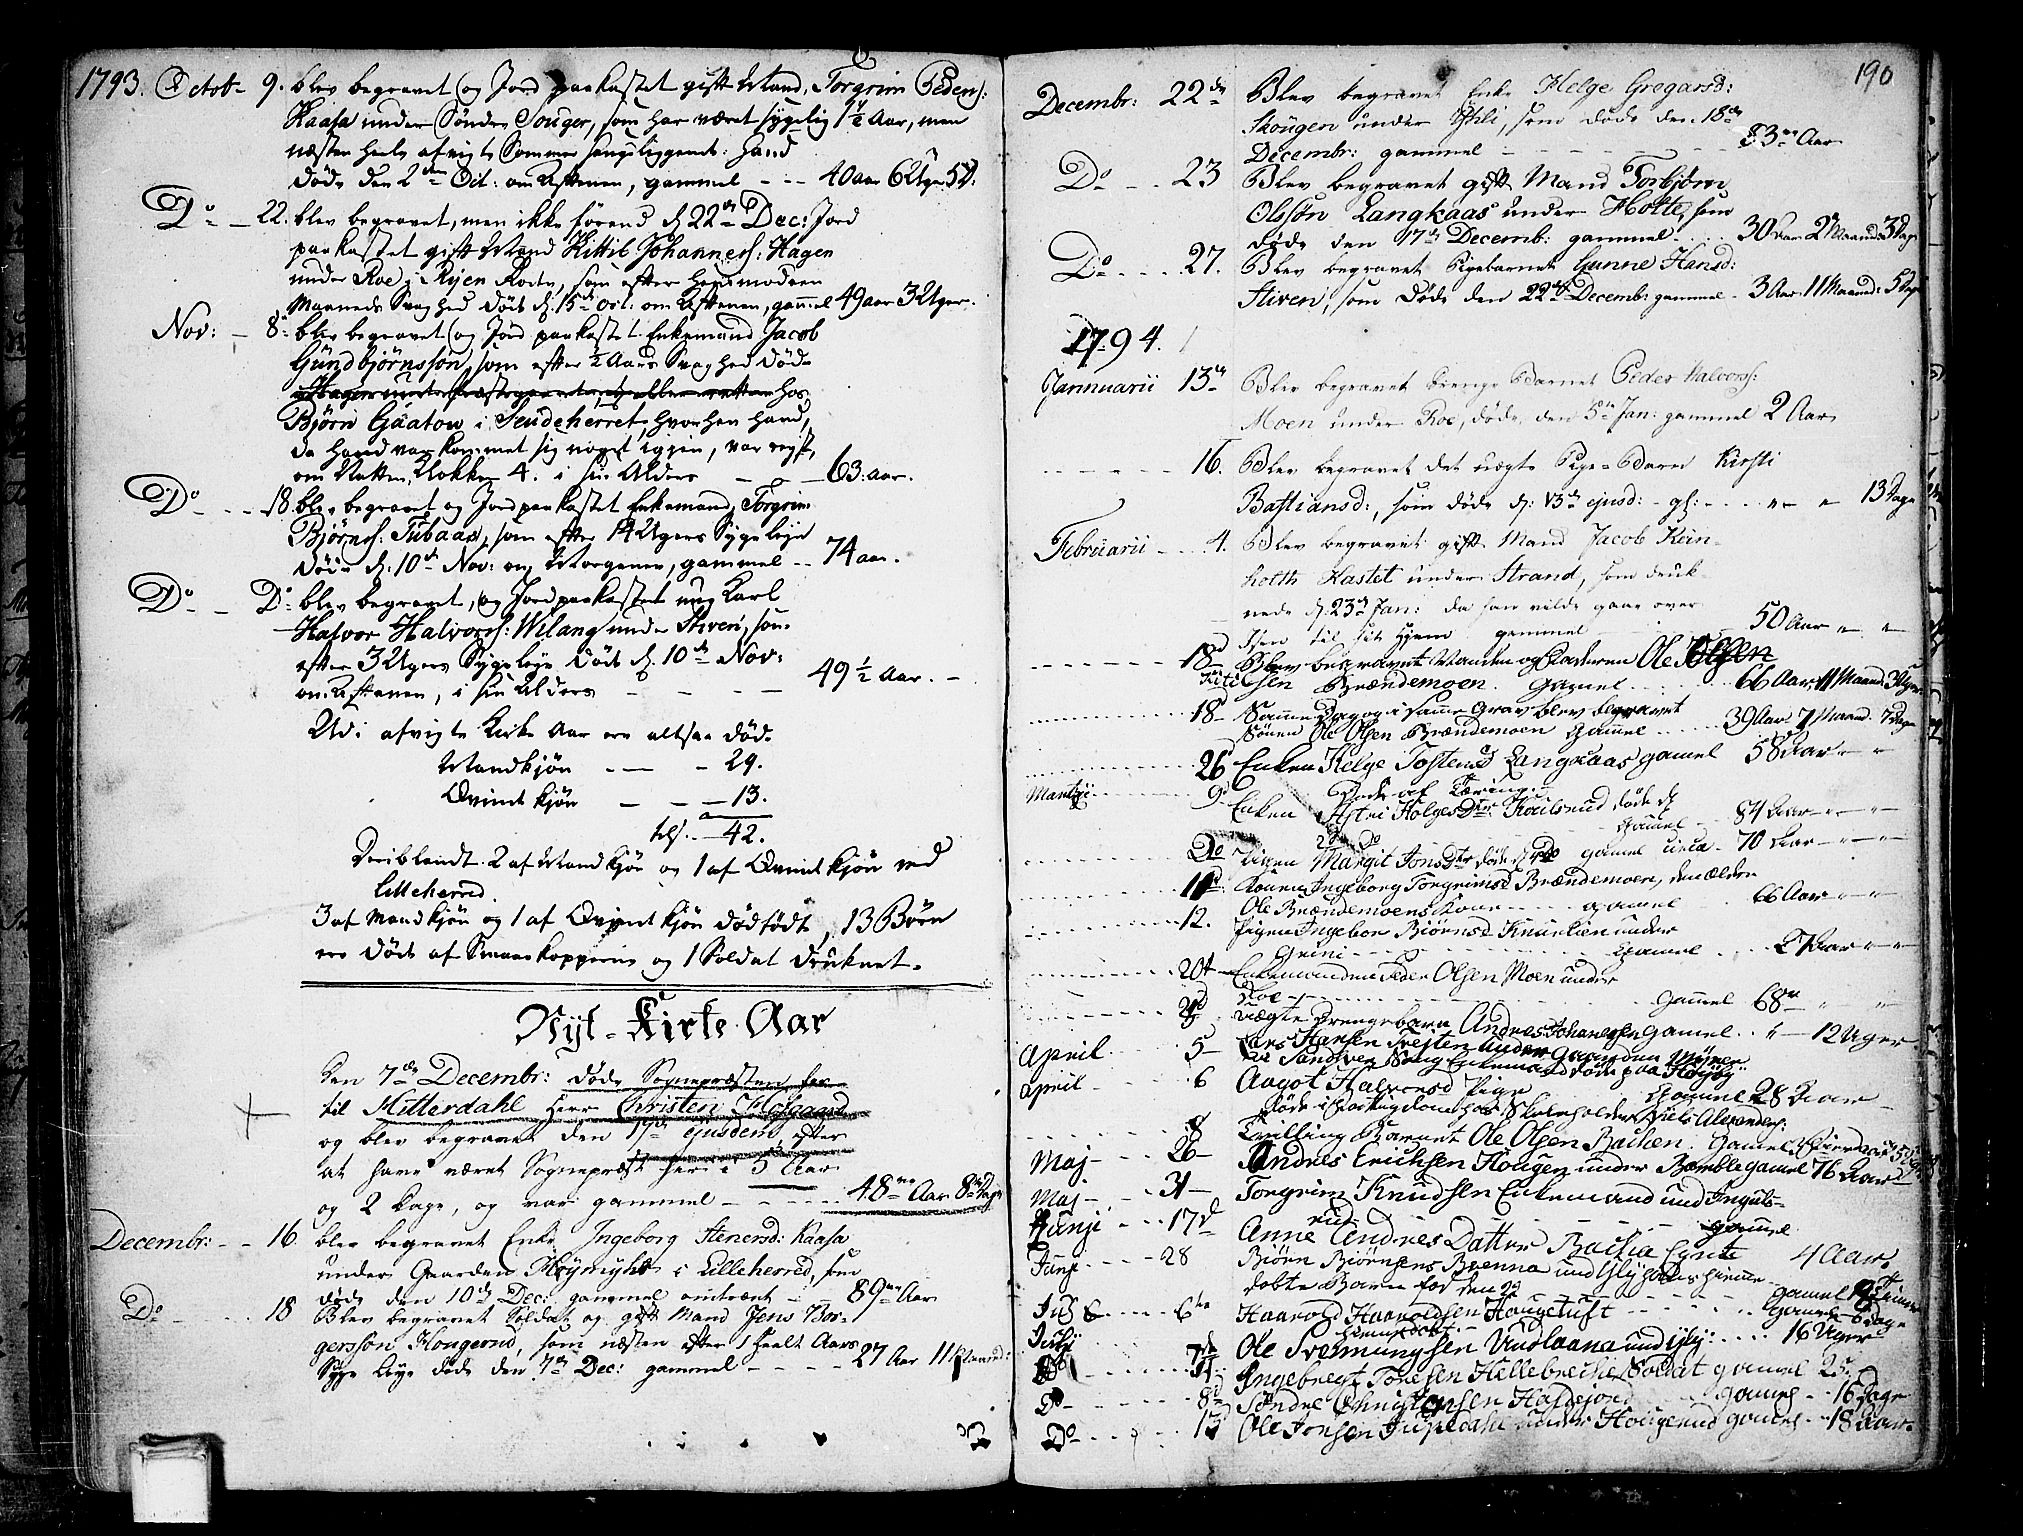 1793. Octob- 9. blev begravet og Jord paakastet gift Mand, Torgrim Peders:
Kaasa under Søndre Souger, som har været sygelig 1½ Aar, men
næsten heele afvigte Sommer sengeliggende: Hand
døde den 2den Oct: om Aftenen, gammel - - - 40 aar 6 Uger 5 D:
Do - 22. blev begravet, men ikke førend d. 22de Dec: Jord
paakastet gift Mand Kittil Johanness: Hagen
under Roe i Ryen Rode, som efter
Maaneds Svaghed døde d. 15de Oct: om Aftenen, gammel 49 aar 3 Uger.
Nov: - 8: blev begravet og Jord paakastet Enkemand Jacob
Gundbjørnsson, som efter ½ Aars Svaghed døde
hos
Bjørn Gaatou i Seudeherret, hvorhen hand,
da hand var kommet sig noget igjen, var reyst,
om Natten Klokken 4. i sin Alders - - 63: aar.
Do - - - 18 blev begravet og Jord paakastet Enkemand, Torgrim
Bjørns: Tubaas, som efter 14 Ugers Sygeleje
døde d. 10de Nov: om Morgenen, gammel -- 74 aar.
Do - - Do blev begravet, og Jord paakastet ung Karl
Halvor Halvorss: Wilang under Stiven, som
efter 3 Ugers Sygeleje døde d. 10de Nov:
om Aftenen, i sin Alders - - - - 49 ½ Aar. -
Udi afvigte Kirke Aar ere altsaa døde
Mandkjøn - - - 29.
Qvindekjøn - - - 13.
tils. - 42.
Deriblandt 2 af Mandkjøn og 1 af Qvindekjøn ved
Lilleherred.
3 af Mandkjøn og 1 af Qvindekjøn dødfødt, 13 Børn
ere døde af Smaaekopperne og 1 Soldat druknet.
Nyt-Kirke Aar
Den 7de Decembr: døde Sognepræsten her
til Hitterdahl Herr Christen Hofgaard
og blev begravet den 17de ejusdem, efter
at have været Sognepræst her i 5 Aar
og 2 Dage, og var gammel - - - - - 48 Aar 8 Dage
Decembr: - - 16. blev begravet Enke Ingeborg Stenersd: Kaasa
under Gaarden Høymyhr i Lilleherred, som
døde den 10de Dec: gammel omtrent - - 89 Aar
Do - - - 18 Blev begravet Soldat og gift Mand Jens Bor-
gersson Hougerud, som næsten efter 1 heelt Aars
Syge leye døde den 7de Dec: gammel - - - - - 27 Aar 11 Maaned:
190
Decembr: 22de Blev begravet Enke Helge Gregarsd:
Skougen under Øhli, som døde den 18de
Decembr: gammel - - - - - - - 83 Aar
Do - - - 23 Blev begravet gift Mand Torbjørn
Olssøn Langkaas under Holte, som
døde den 17de Decemb: gammel - - - 30 Aar 2 Maaneder 3 Dage
Do - - - - 27. Blev begravet Pigebarnet Gunne Hansd:
Stiven, som døde den 22de Decemb: gammel - 3 Aar 11 Maaned: 5 Dage
1794.
Jannuarii 13de Blev begravet Drenge Barnet Peder Halvors:
Moen under Roe, døde den 5de Jan: gammel 2 Aar
- - - - - - 16. Blev begravet det uægte Pige-Barn Kirsti
Bastiansd:, som døde d: 13de ejusd: - gl: - - - - 13 Dage
Februarii - - - 4. Blev begravet gift Mand Jacob Rein-
holth Hastet under Strand, som druk-
nede d. 23de Jan: da han vilde gaae over
Isen til sit Hjem gammel - - - 50 Aar
- - - - - - - 18d Blev begravet Manden og Faderen Ole
Kitilsen Brændemoen. Gamel - - - - 66 Aar 11 Maand. 3 Uger
18 Samme Dag og i samme Grav blev begravet
Sønen Ole Olsen Brændemoen Gamel - - - - 39 Aar 7 Maand. 7 Dage
26 Enken Helge Tostensd Langkaas gamel 58 Aar
Martzii 9d Enken Astri Holgesdtr: Kaulsrud døde d
Gamel - 84 Aar
Do Pigen Margit Jonsdtr døde d gamel circa - 70 Aar
11d Konen Ingeborg Torgrimsd Brændemoen, den ældre
Ole Brændemoens Kone - - - - gamel 66 Aar
12. Pigen Ingebor Bjørnsd Knurlien under
Grini - - - - Gamel - - - 27 Aar
20d Enkemanden Peder Olsen Moen under
Roe - - - - - Gamel 68
uægte Drengebarn Andres Johanessen gamel. 12 Uger
April 5 Lars Hansen Trejten under Gaarden Mÿren
April - - 6 Aagot Halvorsd Pige Gamel 28 Aar
8 Tvilling Barnet Ole Olsen Bachen. Gamel
Maj - 26 - Andres Erichsen Hougen under Bamble gamel 76 Aar
Maj - 31 - Torgrim Knudsen Enkemand und Inguls-
rud - - - gamel
Junji - - - 17d Anne Andres Datter Bachia 4 Aar
Junj 28 Bjørn Bjørnsens Brenna
døbte Barn
Juli 6te Haarold Haaroldsen Haugetuft - - - Gamel Dage
July 7de Ole Svenungsen - - - 16 Uger
Ingebregt Toresen Hellebrecke Soldat gamel 25
Do - 8d Søndre Christensen gamel - - 16 Dage
Do - - - 13 Ole Jonsen under Hougerud gamel - 18 Aar.